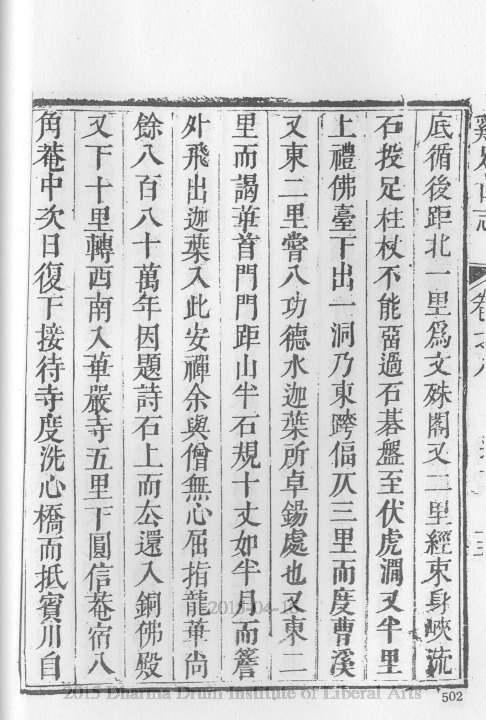 雞足山志
底循後距北一里爲文殊閣又二里經束身峽流
石投足柱杖不能畱過石碁盤至伏虎澗又半里
上禮佛臺下出一洞乃東跨偪仄三里而度曹溪
又東二里嘗八功德水迦葉所卓錫處也又東二
里而謁華首門門距山半石規十丈如半月而簷
外飛出迦葉入此安禪余與僧無心屈指龍華尚
餘八百八十萬年因題詩石上而去還入銅佛殿
又下十里轉西南入華嚴寺五里下圓信菴宿八
角菴中次日復下接待寺度洗心橋而抵賓川自
2015-04-1
2015 Dharma Drum Institute of Liberal Arts
502